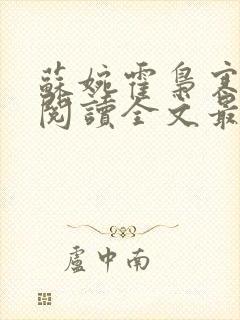 蘇婉霍梟寒
閱讀全文最
盧中南